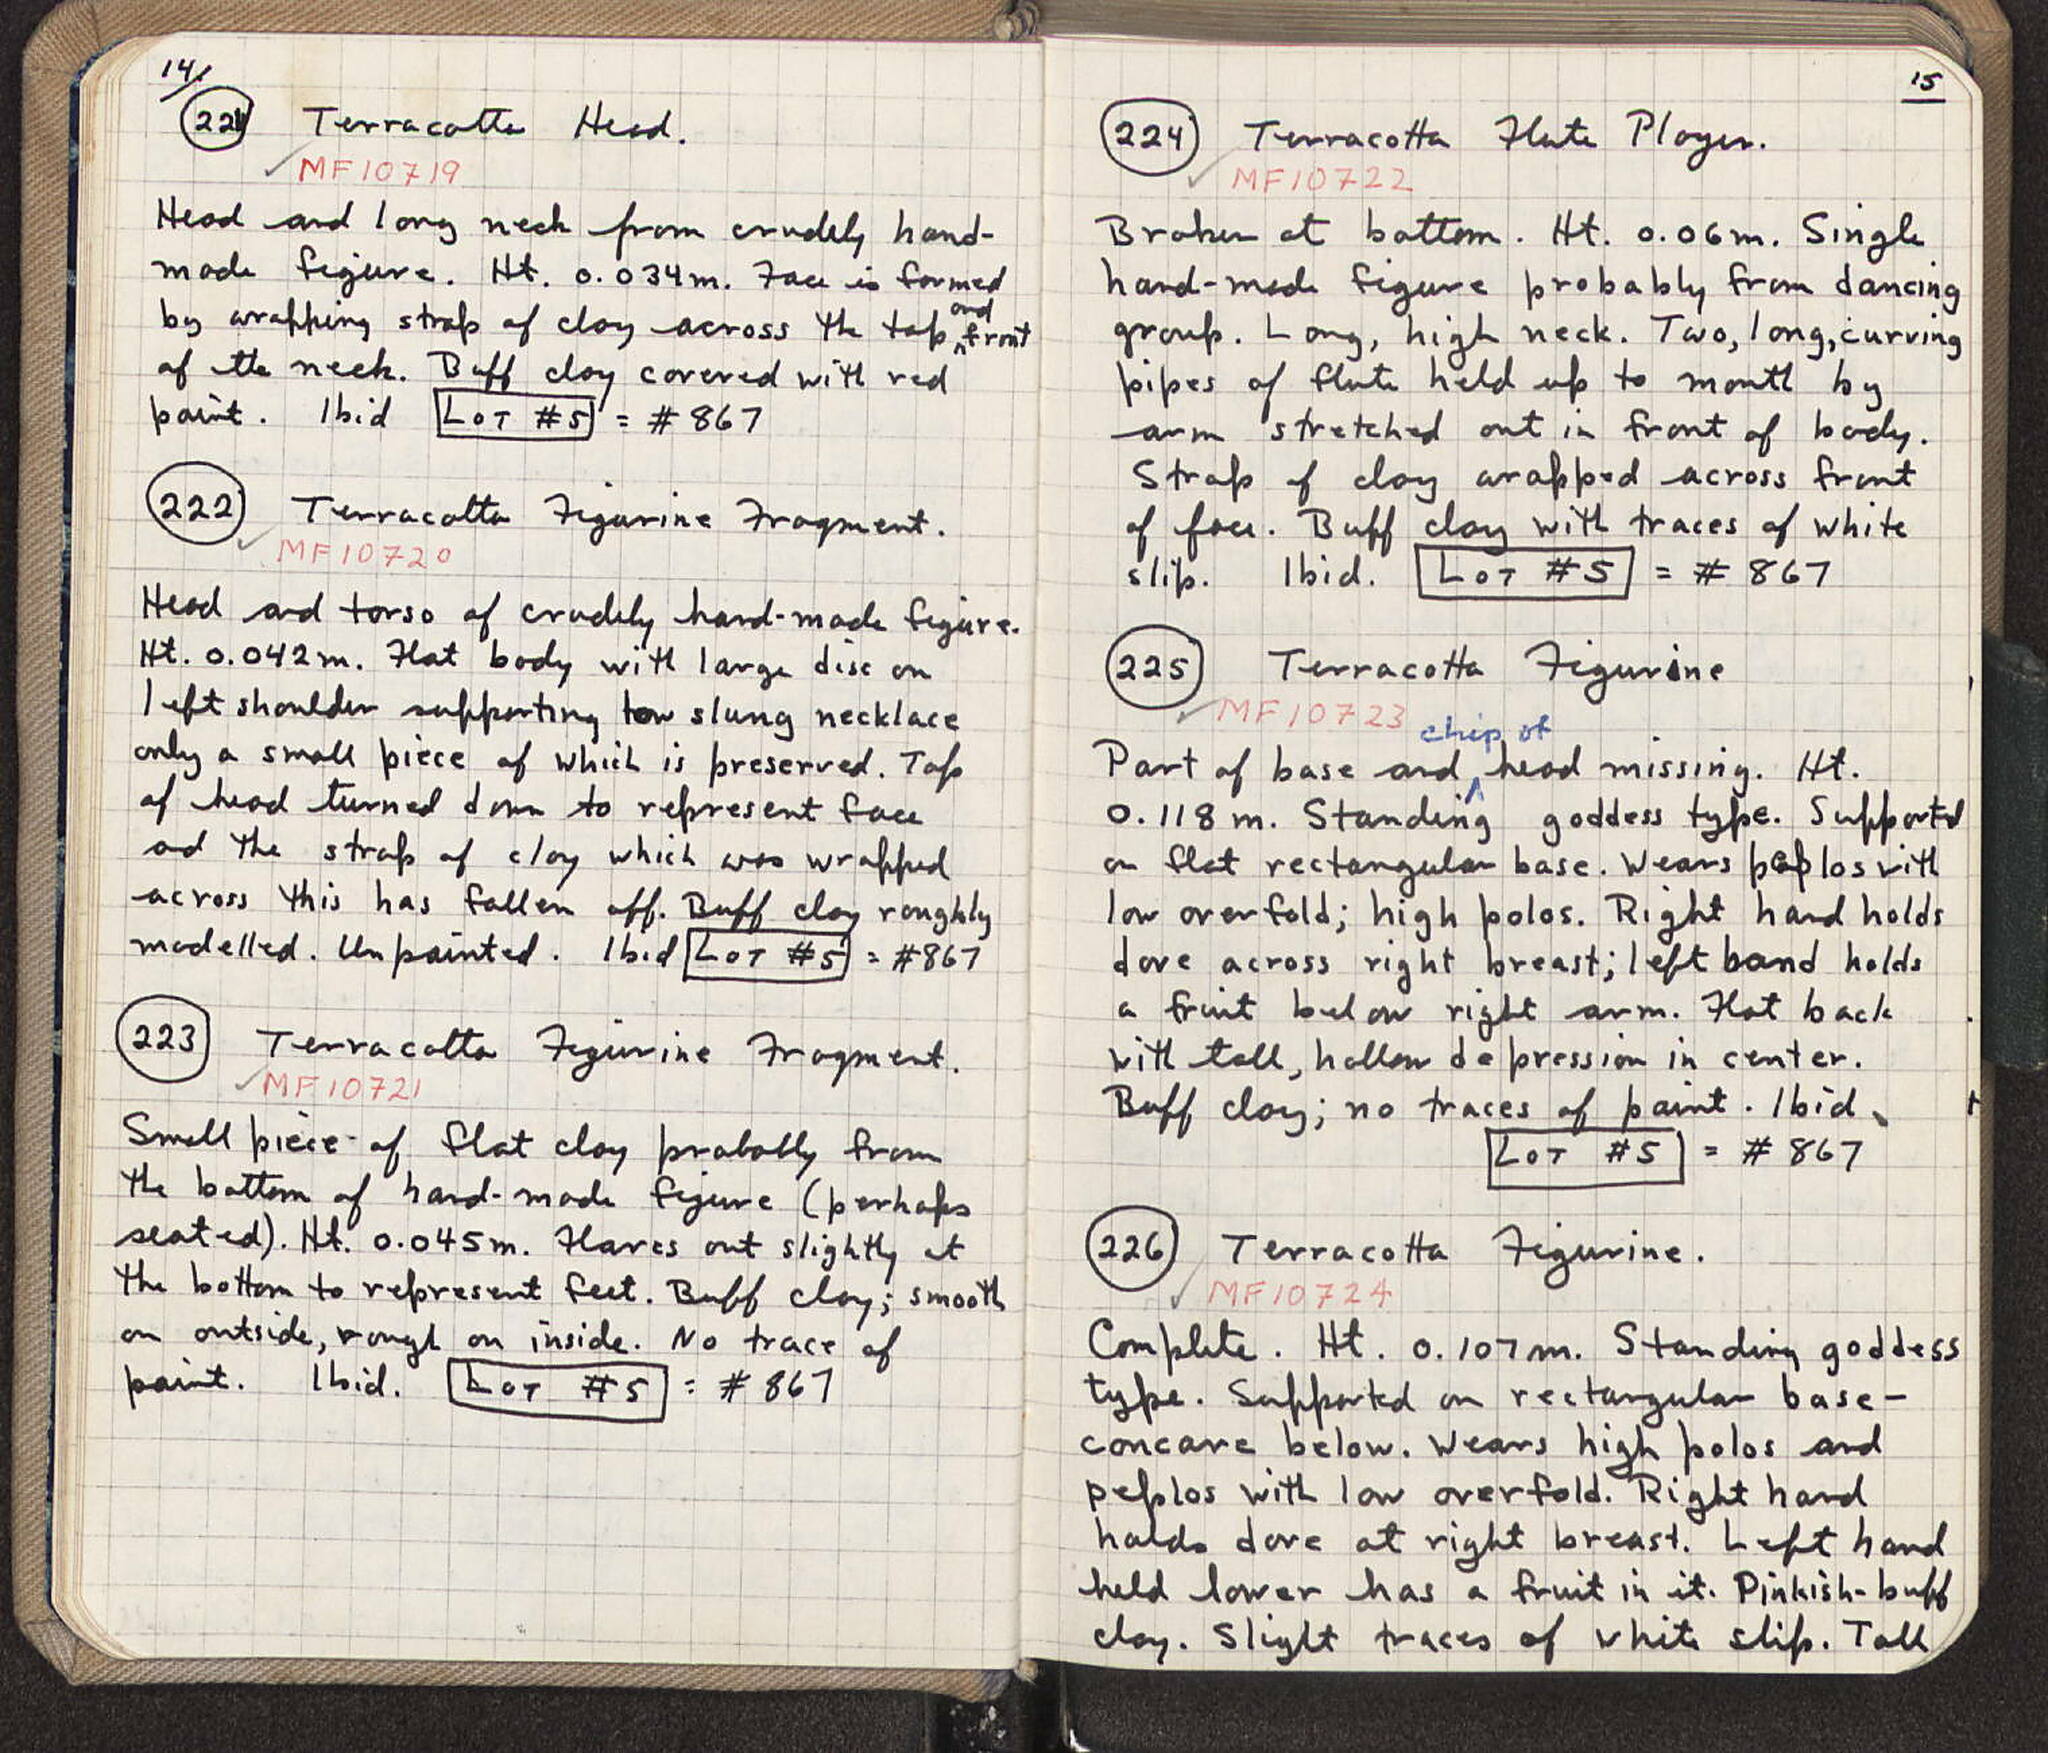 14/
221 Terracotta Head.
MF10719
Head and long neck from crudely hand-
made figure. Ht. 0.034m. Face is formed
by wrapping strap of clay across the top and front
of the neck. Buff clay covered with red
paint. Ibid LOT #5 = #867
222 Terracotta Figurine Fragment.
MF10720
Head and torso of crudely hand-made figure.
Ht. 0.042m. Flat body with large disc on
left shoulder supporting low slung necklace
only a small piece of which is preserved. Top
of head turned down to represent face
ad the strap of clay which was wrapped
across this has fallen off. Buff clay roughly
modelled. Unpainted. Ibid LOT #5 = #867
223 Terracotta Figurine Fragment.
MF10721
Small piece of flat clay probably from
the bottom of hand-made figure (perhaps
seated). Ht. 0.045m. Flares out slightly at
the bottom to represent feet. Buff clay; smooth
on outside, rough on inside. No trace of
paint. Ibid. LOT #5 = #867
15
224 Terracotta Flute Player.
MF10722
Broken at bottom. Ht. 0.06m. Single
hand-made figure probably from dancing
group. Long, high neck. Two, long, curving
pipes of flute held up to mouth by
arm stretched out in front of body.
Strap of clay wrapped across front
of face. Buff clay with traces of white
slip. Ibid. LOT #5 = #867
225 Terracotta Figurine
MF10723
Part of base and chip of head missing. Ht.
0.118m. Standing goddess type. Supported
on flat rectangular base. Wears peplos with
low overfold; high polos. Right hand holds
dove across right breast; left hand holds
a fruit below right arm. Flat back
with tall, hollow depression in center.
Buff clay; no traces of paint. Ibid.
LOT #5 = #867
226 Terracotta Figurine.
MF10724
Complete. Ht. 0.107m. Standing goddess
type. Supported on rectangular base-
concave below. Wears high polos and
peplos with low overfold. Right hand
holds dove at right breast. Left hand
held lower has a fruit in it. Pinkish-buff
clay. Slight traces of white slip. Tall